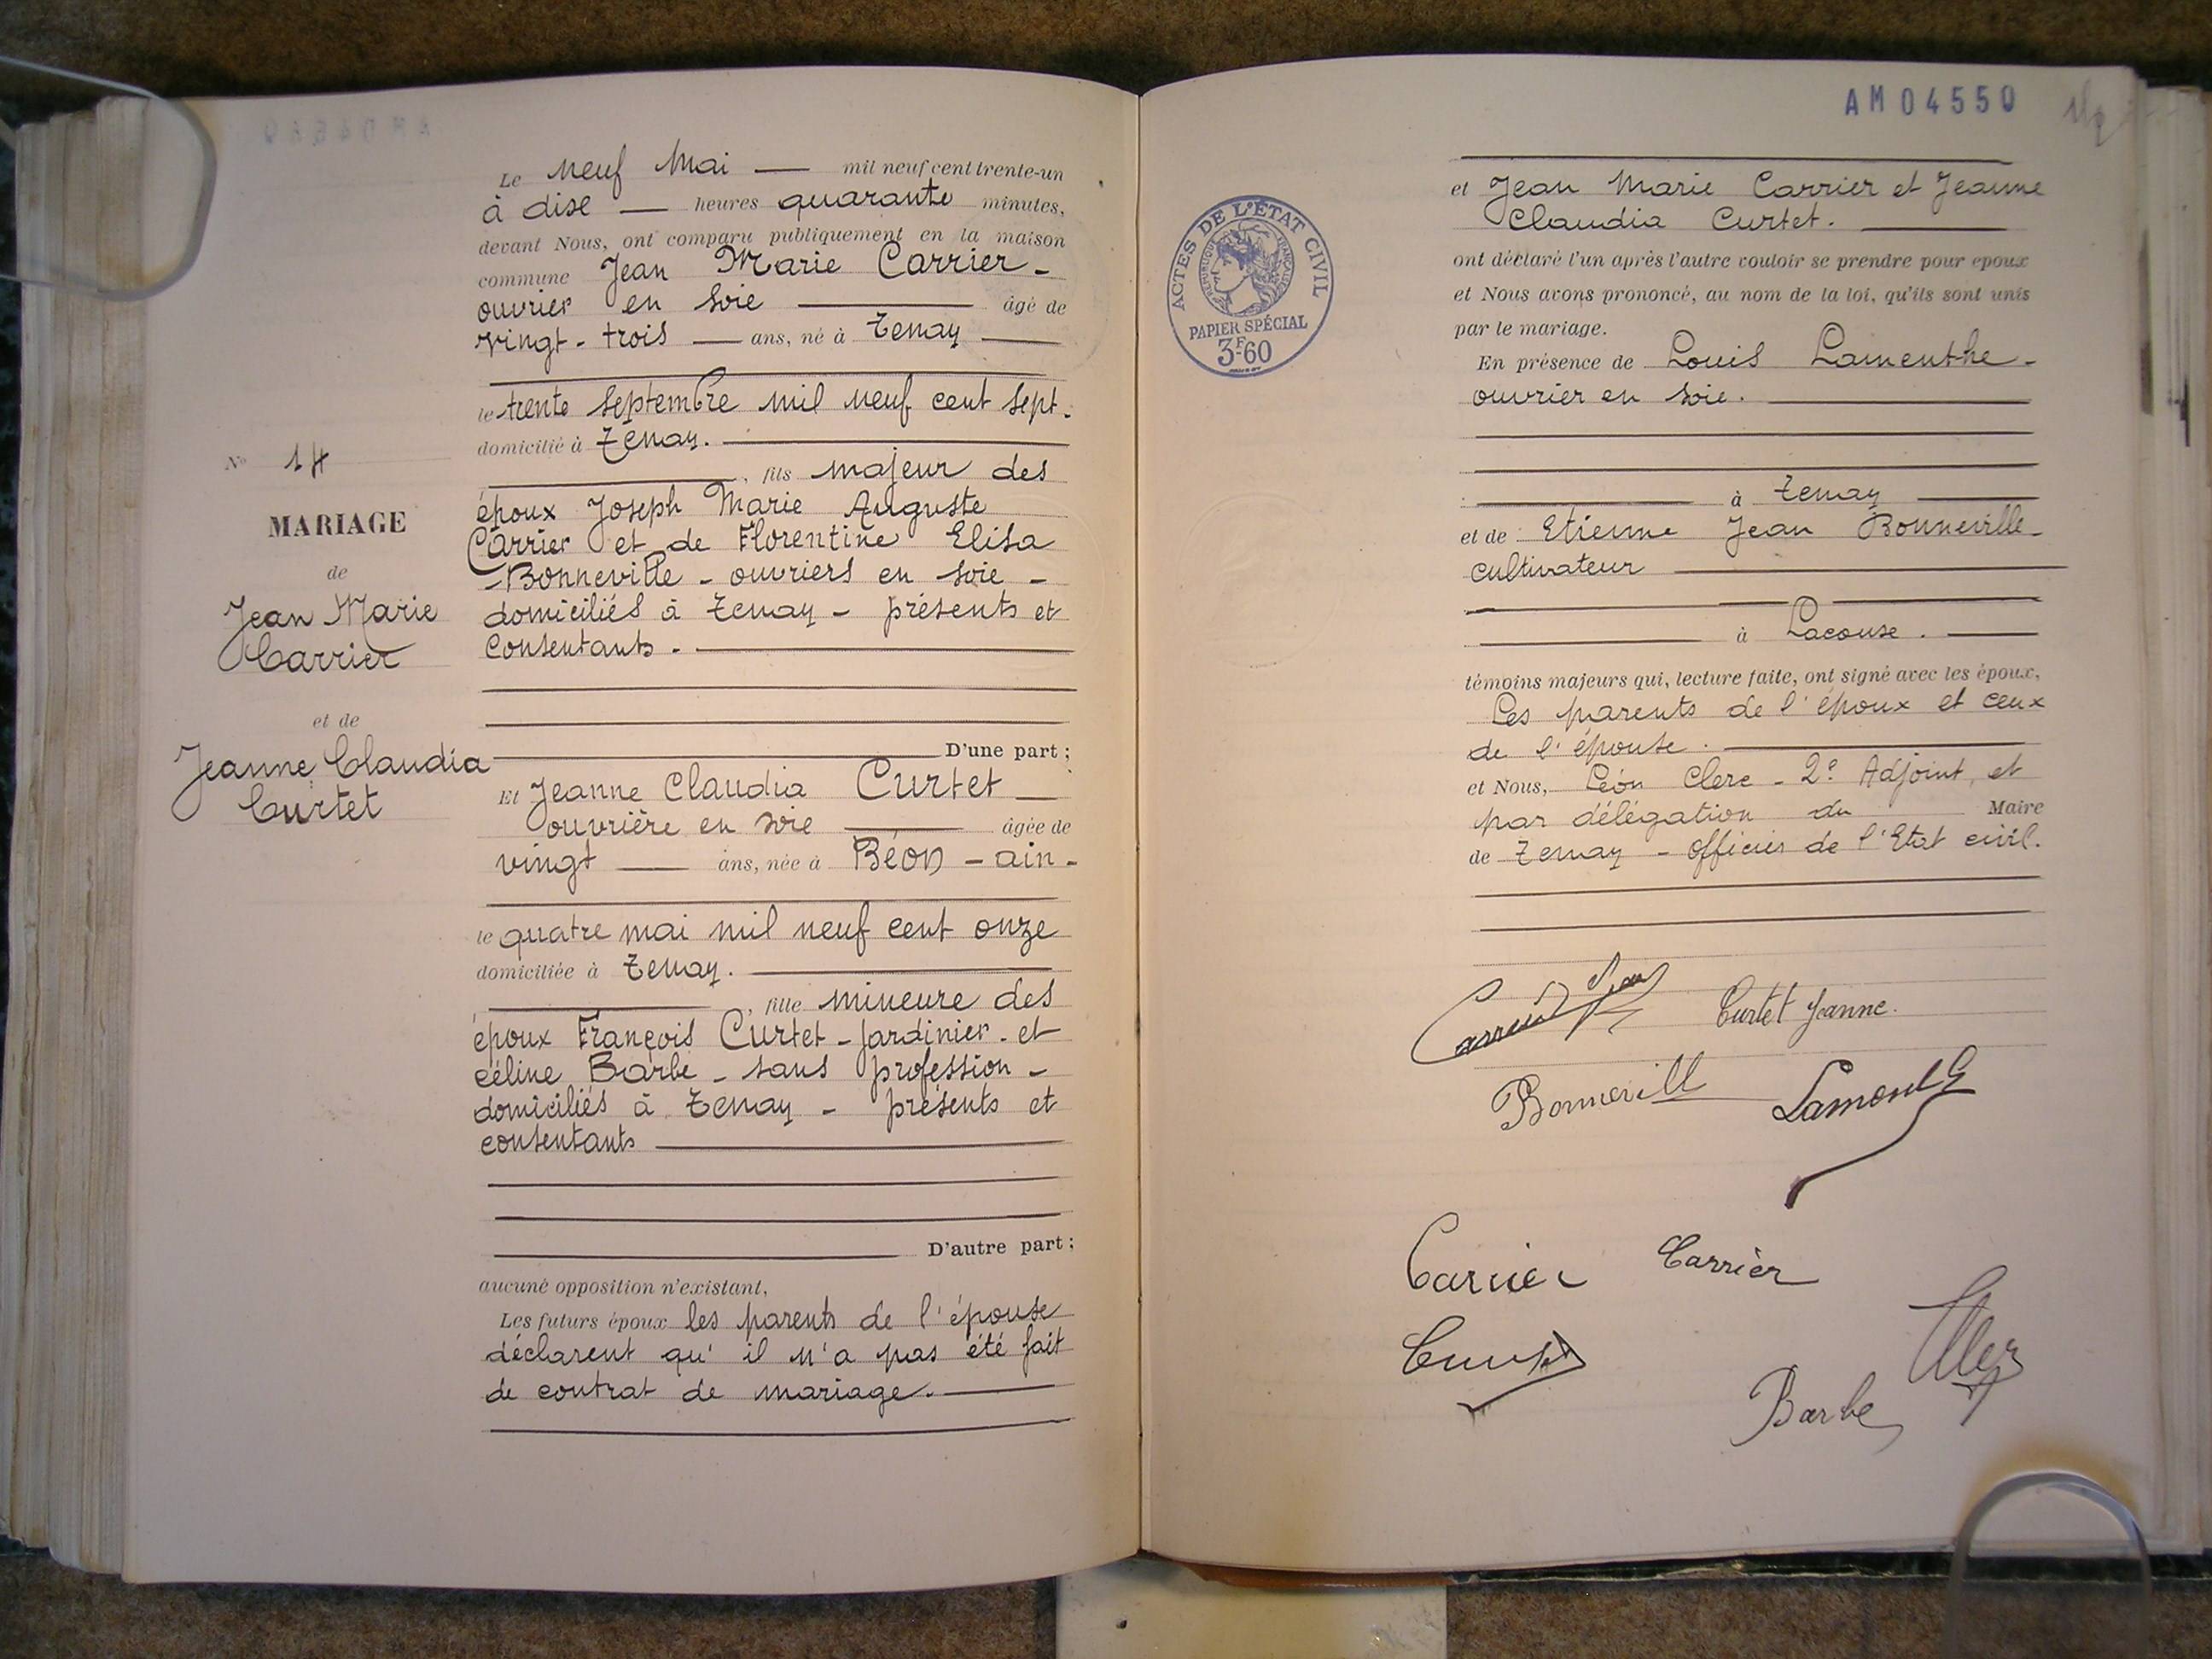 Le neuf Mai — mil neuf cent trente-un
à dise — heures quarante minutes,
devant Nous, ont comparu publiquement en la maison
commune Jean Marie Carrier -
ouvrier en soie — âgé de
vingt-trois — ans, né à Tenay —
le trente septembre mil neuf cent sept.
domicilié à Tenay. —
, fils majeur des
époux Joseph Marie Auguste
Carrier et de Florentine Elisa
Bonneville - ouvriers en soie -
domiciliés à Tenay - présents et
consentants. -
D'une part ;
Et Jeanne Claudia Curtet —
ouvrière en soie — âgée de
vingt — ans, née à Béon - ain -
le quatre mai mil neuf cent onze
domiciliée à Tenay. —
, fille mineure des
époux François Curtet - jardinier - et
céline Barbe - sans profession -
domiciliés à Tenay - présents et
consentants —
D'autre part ;
aucune opposition n'existant,
Les futurs époux les parents de l'épouse
déclarent qu'il n'a pas été fait
de contrat de mariage. —
No 14
MARIAGE
de
Jean Marie
Carrier
et de
Jeanne Claudia
Curtet
AM04550
ACTES DE L'ÉTAT CIVIL
RÉPUBLIQUE FRANÇAISE
PAPIER SPÉCIAL
3F60
et Jean Marie Carrier et Jeanne
Claudia Curtet. —
ont déclaré l'un après l'autre vouloir se prendre pour époux
et Nous avons prononcé, au nom de la loi, qu'ils sont unis
par le mariage.
En présence de Louis Lamenthe -
ouvrier en soie. —
à Tenay —
et de Etienne Jean Bonneville -
cultivateur —
à Lacouse. —
témoins majeurs qui, lecture faite, ont signé avec les époux,
Les parents de l'époux et ceux
de l'épouse. —
et Nous, Léon Clerc - 2e Adjoint, et
par délégation du Maire
de Tenay - officier de l'Etat civil.
Carrier Jean
Curtet Jeanne.
Bonnevill
Carrier
Carrier
Barbe